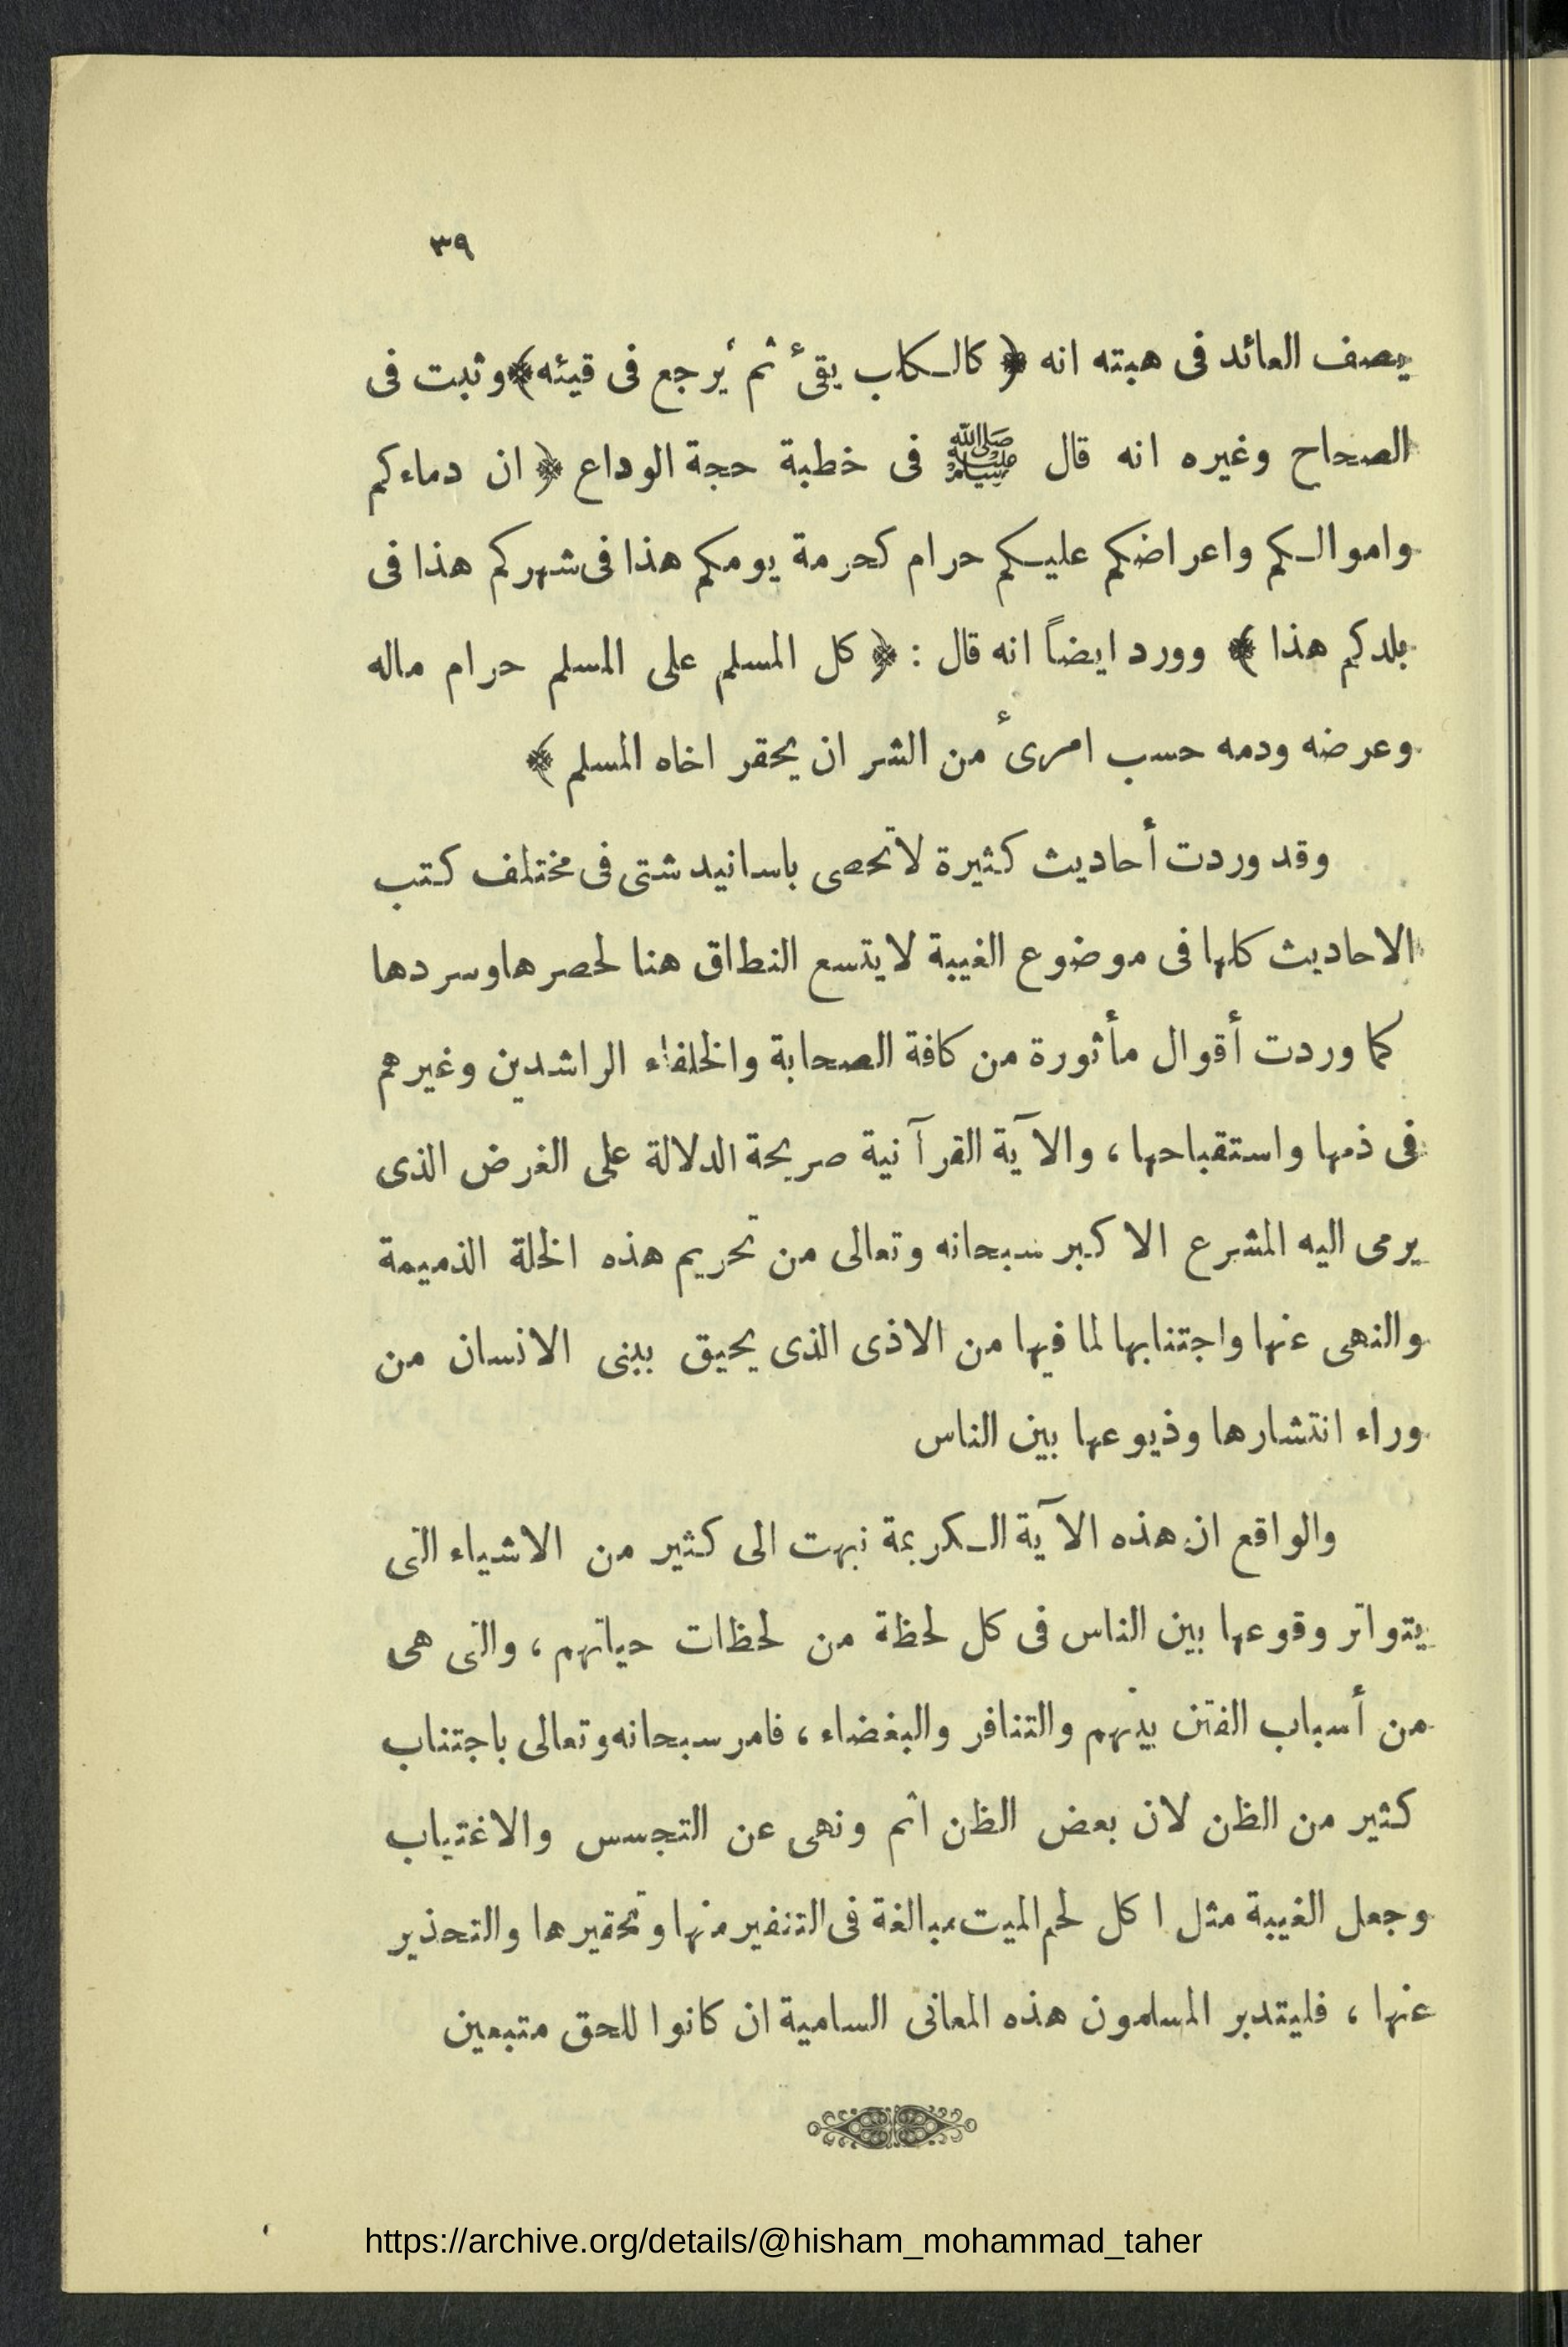 ٣٩
يصف العائد فى هبته انه ﴿ كالكلب يقىء ثم يرجع فى قيئه﴾ وثبت فى
الصحاح وغيره انه قال ﷺ فى خطبة حجة الوداع ﴿ ان دماءكم
واموالكم واعراضكم عليكم حرام كحرمة يومكم هذا فى شهركم هذا فى
بلدكم هذا ﴾ وورد ايضاً انه قال : ﴿ كل المسلم على المسلم حرام ماله
وعرضه ودمه حسب امرىء من الشر ان يحقر اخاه المسلم ﴾
وقد وردت أحاديث كثيرة لاتحصى باسانيد شتى فى مختلف كتب
الاحاديث كلها فى موضوع الغيبة لايتسع النطاق هنا لحصرها وسردها
كما وردت أقوال مأثورة من كافة الصحابة والخلفاء الراشدين وغيرهم
فى ذمها واستقباحها ، والآية القرآنية صريحة الدلالة على الغرض الذى
يرمى اليه المشرع الاكبر سبحانه وتعالى من تحريم هذه الخلة الذميمة
والنهى عنها واجتنابها لما فيها من الاذى الذى يحيق ببنى الانسان من
وراء انتشارها وذيوعها بين الناس
والواقع ان هذه الآية الكريمة نبهت الى كثير من الاشياء التى
يتواتر وقوعها بين الناس فى كل لحظة من لحظات حياتهم ، والتى هى
من أسباب الفتن بينهم والتنافر والبغضاء ، فامر سبحانه وتعالى باجتناب
كثير من الظن لان بعض الظن اثم ونهى عن التجسس والاغتياب
وجعل الغيبة مثل اكل لحم الميت مبالغة فى التنفير منها وتحقيرها والتحذير
عنها ، فليتدبر المسلمون هذه المعانى السامية ان كانوا للحق متبعين
https://archive.org/details/@hisham_mohammad_taher